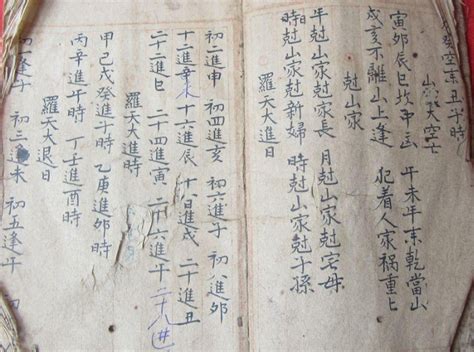 癸空亡丑午時
山家大空亡
寅卯辰巳坎中 午未年未乾當山
戌亥不離山上逢 犯着人家禍重匕
尅山家
年尅山家尅家長 月尅山家尅宅母
時尅山家尅新婦 時尅山家尅子孫
羅天大進日
初二進申 初四進亥 初六進子 初八進卯
十二進 十六進辰 十八日進戌 二十進丑
二十二進日 二十四進寅 二十六進午 二十八進
羅天大進時
甲己戊癸進子時 乙庚進卯時
丙辛進午時 丁壬進酉時
羅天大退日
初 逢子 初三逢未 初五逢午 初